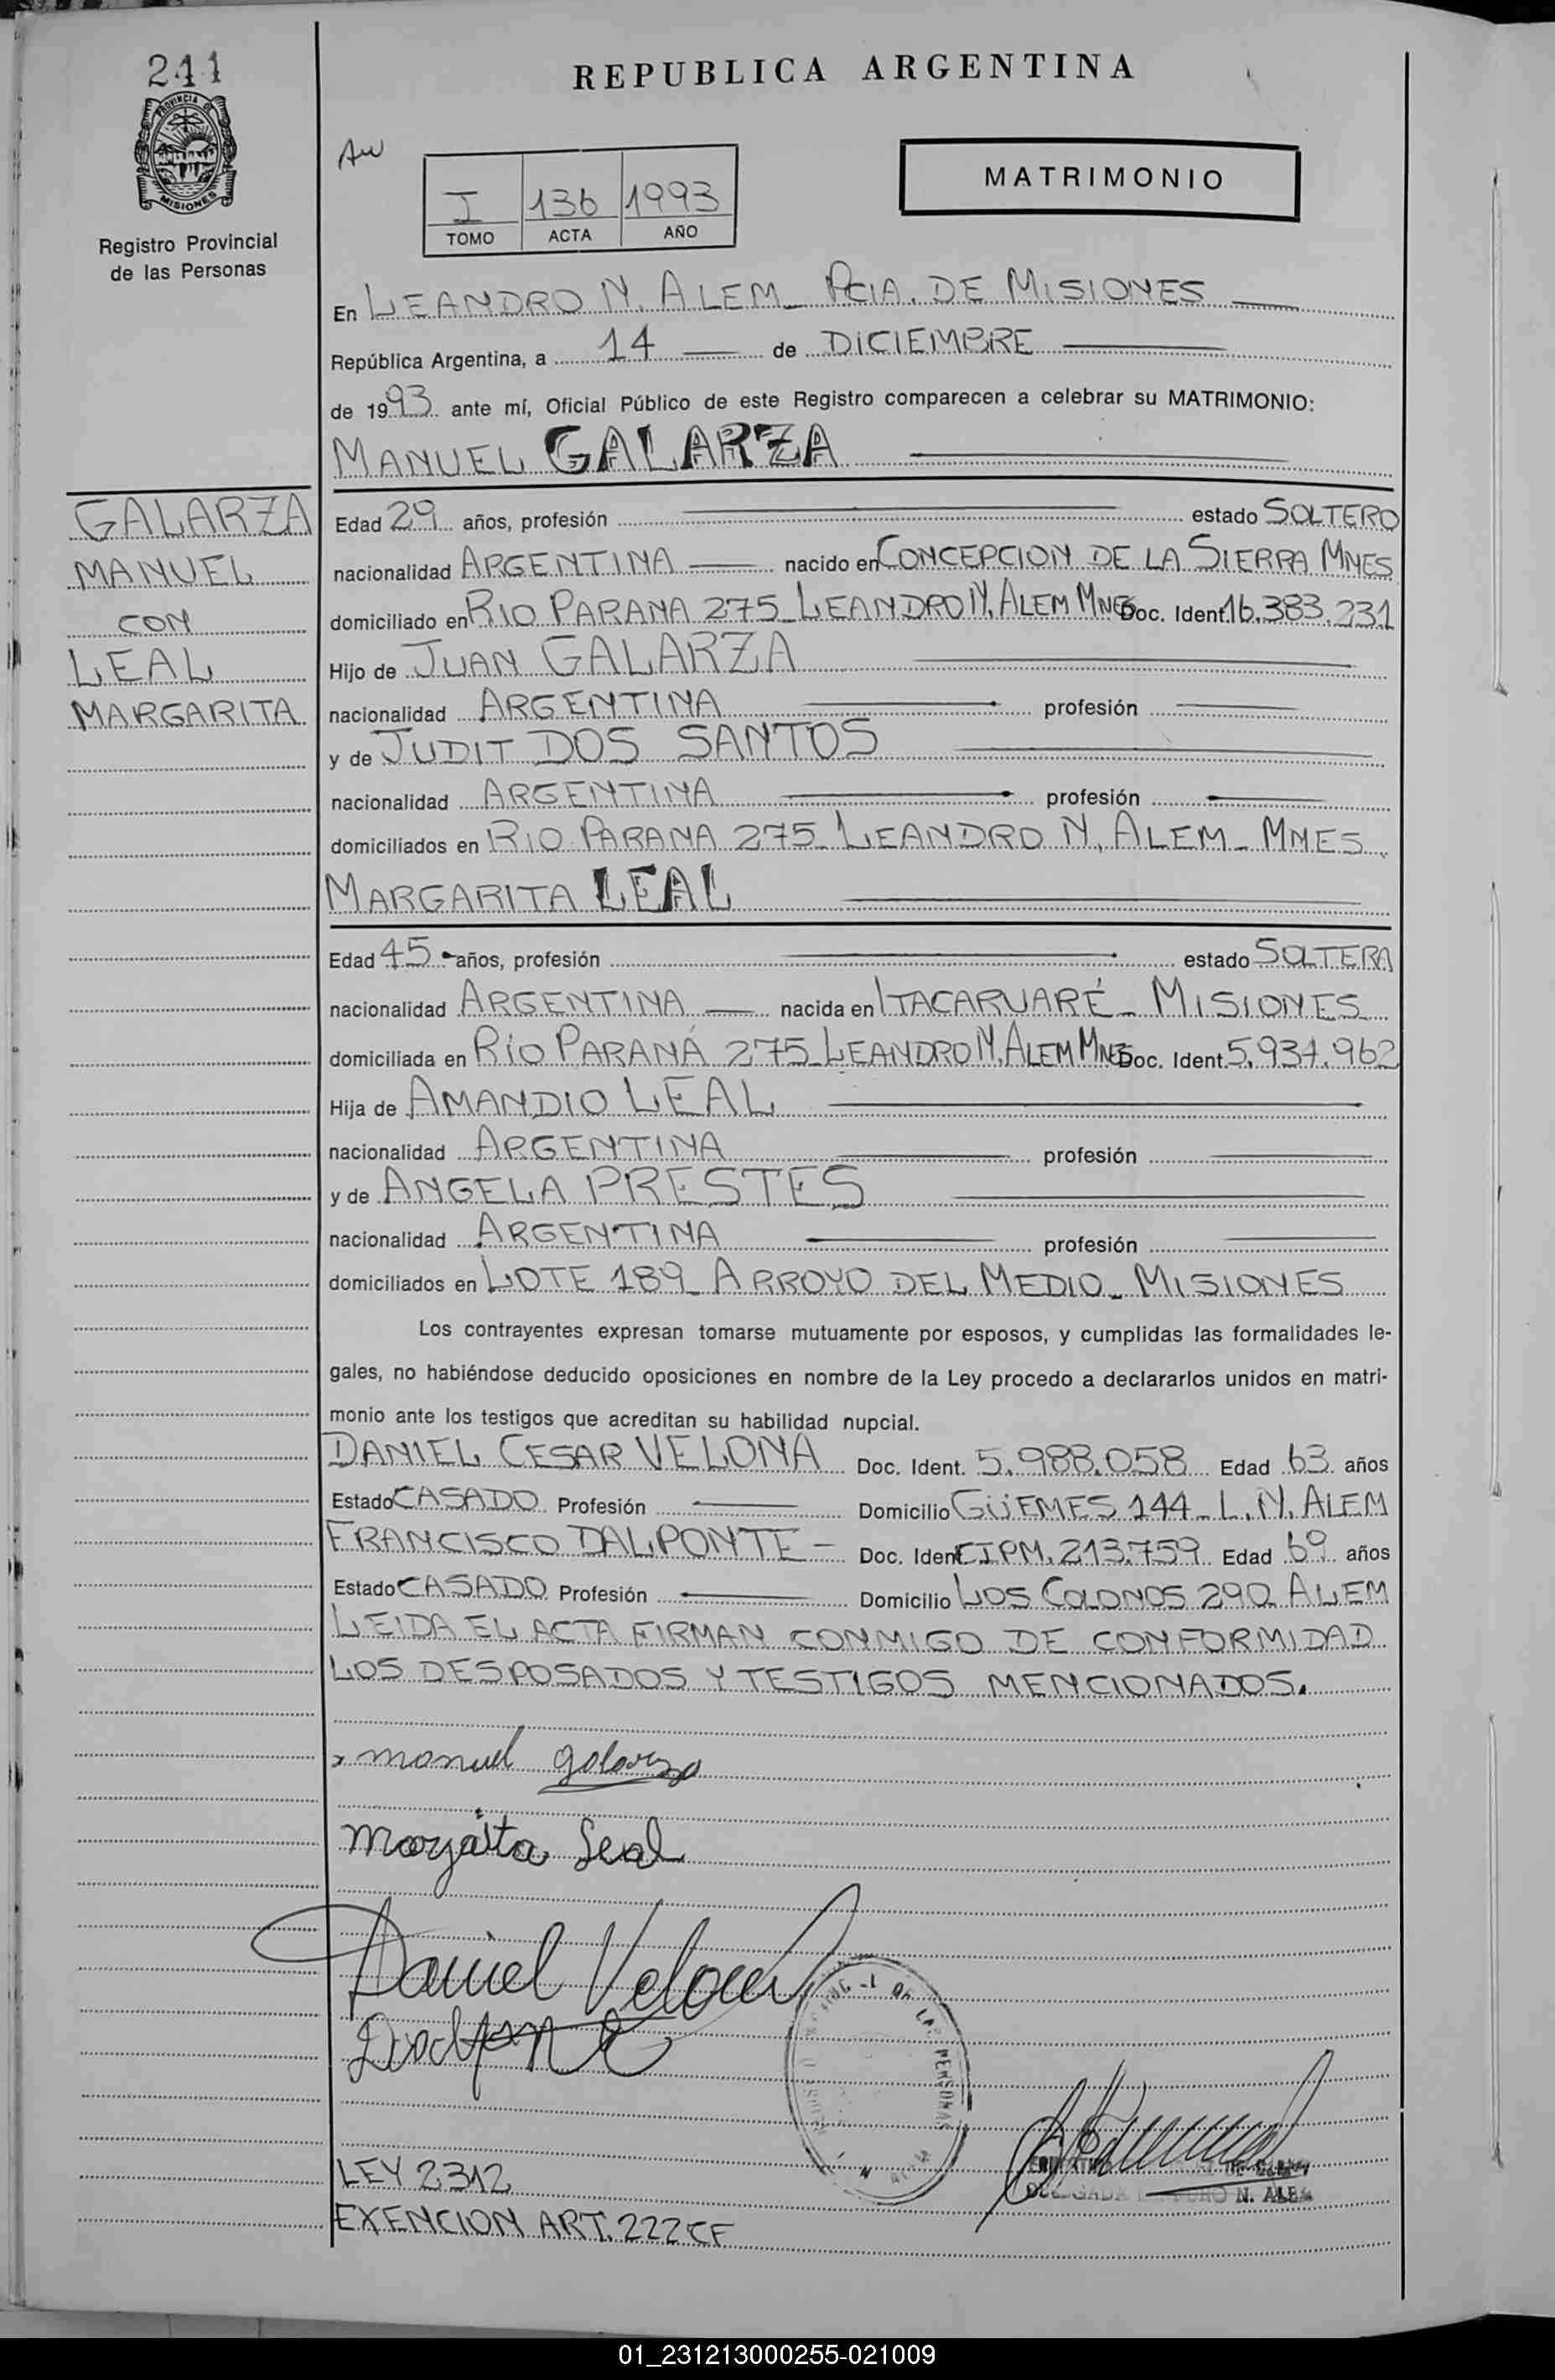 241
PROVINCIA DE
MISIONES
Registro Provincial
de las Personas
REPUBLICA ARGENTINA
I 136 1993
TOMO ACTA AÑO
MATRIMONIO
En LEANDRO N. ALEM_ PCIA. DE MISIONES
República Argentina, a 14 de DICIEMBRE
de 1993 ante mí, Oficial Público de este Registro comparecen a celebrar su MATRIMONIO:
MANUEL GALARZA
GALARZA
MANUEL
CON
LEAL
MARGARITA
Edad 29 años, profesión estado SOLTERO
nacionalidad ARGENTINA nacido en CONCEPCION DE LA SIERRA MNES
domiciliado en RIO PARANA 275_LEANDRO N. ALEM MNES Doc. Ident. 16.383.231
Hijo de JUAN GALARZA
nacionalidad ARGENTINA profesión
y de JUDIT DOS SANTOS
nacionalidad ARGENTINA profesión
domiciliados en RIO PARANA 275_LEANDRO N. ALEM_ MNES.
MARGARITA LEAL
Edad 45 años, profesión estado SOLTERA
nacionalidad ARGENTINA nacida en ITACARUARÉ_ MISIONES
domiciliada en RÍO PARANÁ 275_LEANDRO N. ALEM MNES Doc. Ident. 5.931.962
Hija de AMANDIO LEAL
nacionalidad ARGENTINA profesión
y de ANGELA PRESTES
nacionalidad ARGENTINA profesión
domiciliados en LOTE 189_ ARROYO DEL MEDIO_ MISIONES
Los contrayentes expresan tomarse mutuamente por esposos, y cumplidas las formalidades le-
gales, no habiéndose deducido oposiciones en nombre de la Ley procedo a declararlos unidos en matri-
monio ante los testigos que acreditan su habilidad nupcial.
DANIEL CESAR VELONA Doc. Ident. 5.988.058 Edad 63 años
Estado CASADO Profesión Domicilio GÜEMES 144_ L.N. ALEM
FRANCISCO DALPONTE - Doc. Ident. CIPM. 213.759 Edad 69 años
Estado CASADO Profesión Domicilio LOS COLONOS 290 ALEM
LEIDA EL ACTA FIRMAN CONMIGO DE CONFORMIDAD
LOS DESPOSADOS Y TESTIGOS MENCIONADOS.
manuel galarza
Margarita Leal
Daniel Velona
DE LAS PERSONAS
N. ALEM
LEY 2312
EXENCION ART. 222 CF
01_231213000255-021009